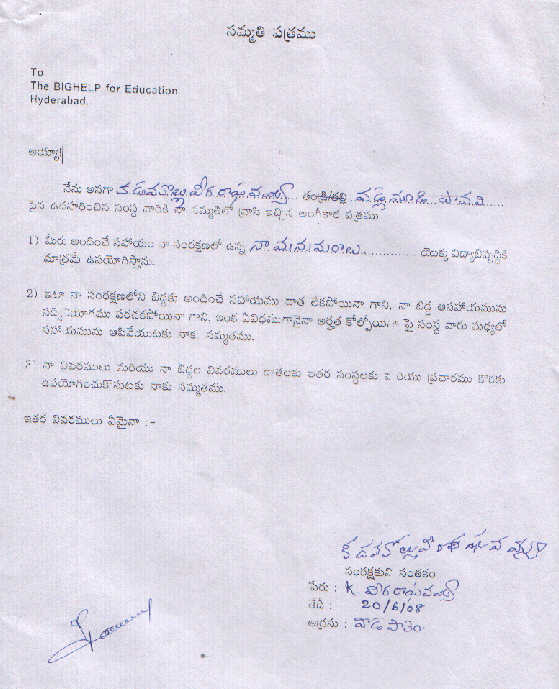 సమ్మతి పత్రము
To
The BIGHELP for Education
Hyderabad.
అయ్యా!
నేను అనగా వీర రాఘవమ్మ తండ్రి/తల్లి
పైన ఉదహరించిన సంస్థ వారికి నా సమ్మతితో వ్రాసి ఇచ్చిన అంగీకార పత్రము
1) మీరు అందించే సహాయం నా సంరక్షణలో ఉన్న నా మనుమరాలు............ యొక్క విద్యాభివృద్ధికి
మాత్రమే ఉపయోగిస్తాను.
2) ఇలా నా సంరక్షణలోని బిడ్డకు అందించే సహాయము దాత లేకపోయినా గాని, నా బిడ్డ ఆసహాయమును
సద్వినియోగము పరచకపోయినా గాని, ఇంకా ఏవిధముగానైనా అర్హత కోల్పోయినా పై సంస్థ వారు మధ్యలో
సహాయమును ఆపివేయుటకు నాకు సమ్మతము.
3) నా వివరములు మరియు నా బిడ్డల వివరములు దాతలకు ఇతర సంస్థలకు మరియు ప్రచారము కొరకు
ఉపయోగించుకొనుటకు నాకు సమ్మతము.
ఇతర వివరములు ఏమైనా :-
సంరక్షకుని సంతకం
పేరు : K వీరరాఘవమ్మ
తేదీ : 20/6/08
అడ్రసు :